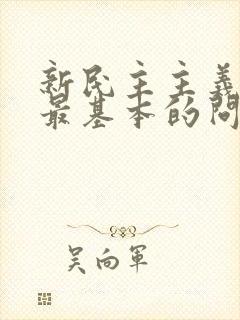 新民主主義
最基本的問
吴向軍